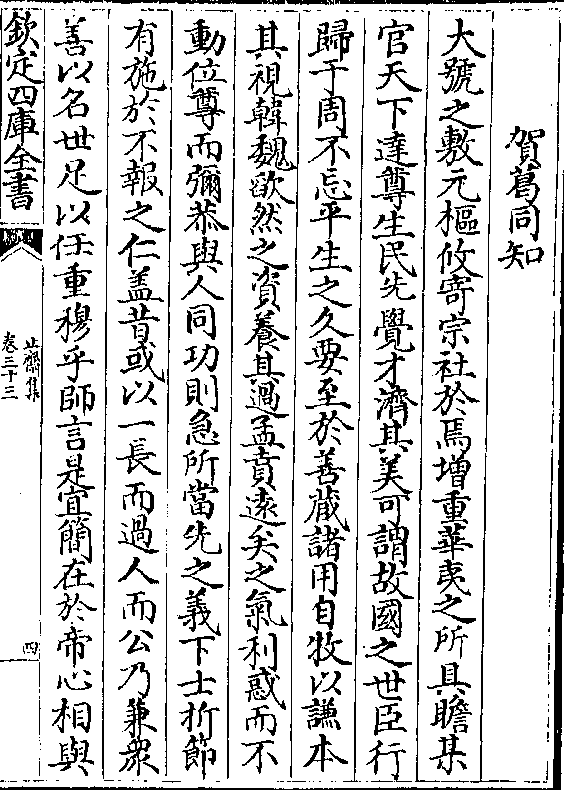 賀葛同知
大號之敷元樞攸寄宗社於焉增重華夷之所具瞻某
官天下達尊生民先覺才濟其美可謂故國之世臣行
歸于周不忘平生之久要至於善藏諸用自牧以謙本
其視韓魏欿然之資養其過孟賁遠矣之氣利惑而不
動位尊而彌恭與人同功則急所當先之義下士折節
有施於不報之仁盖昔或以一長而過人而公乃兼衆
善以名世足以任重穆乎師言是宜簡在於帝心相與
欽定四庫全書
止齋集
卷三十三
四